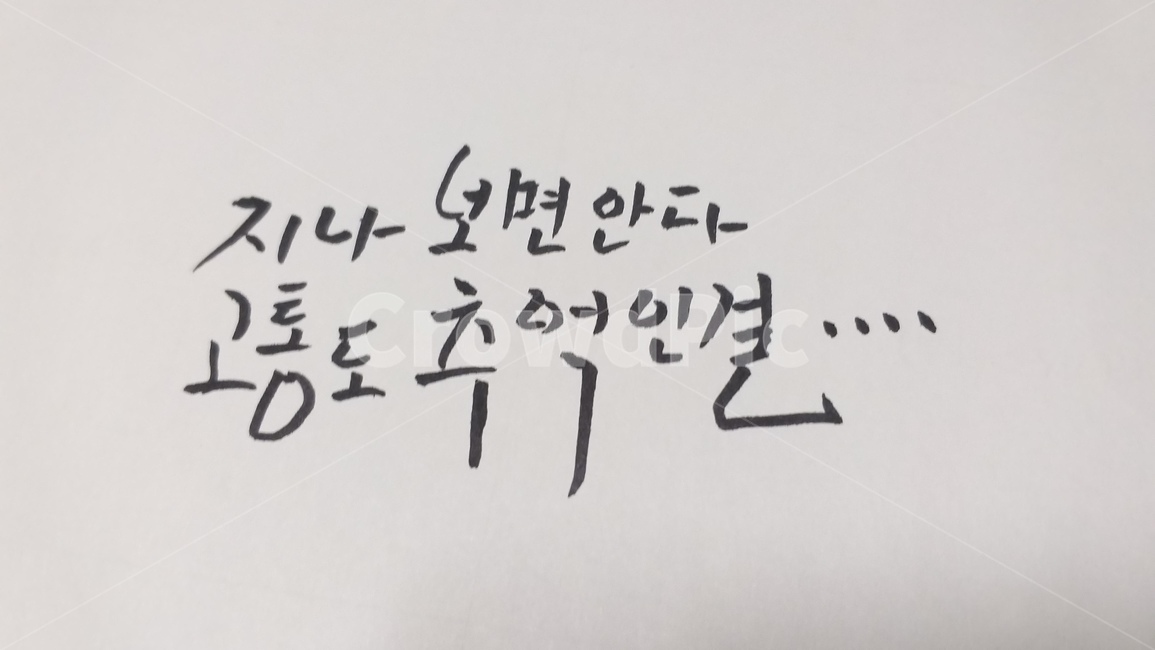 지나 보면 안다
고통도 추억인걸....
CrowdPic